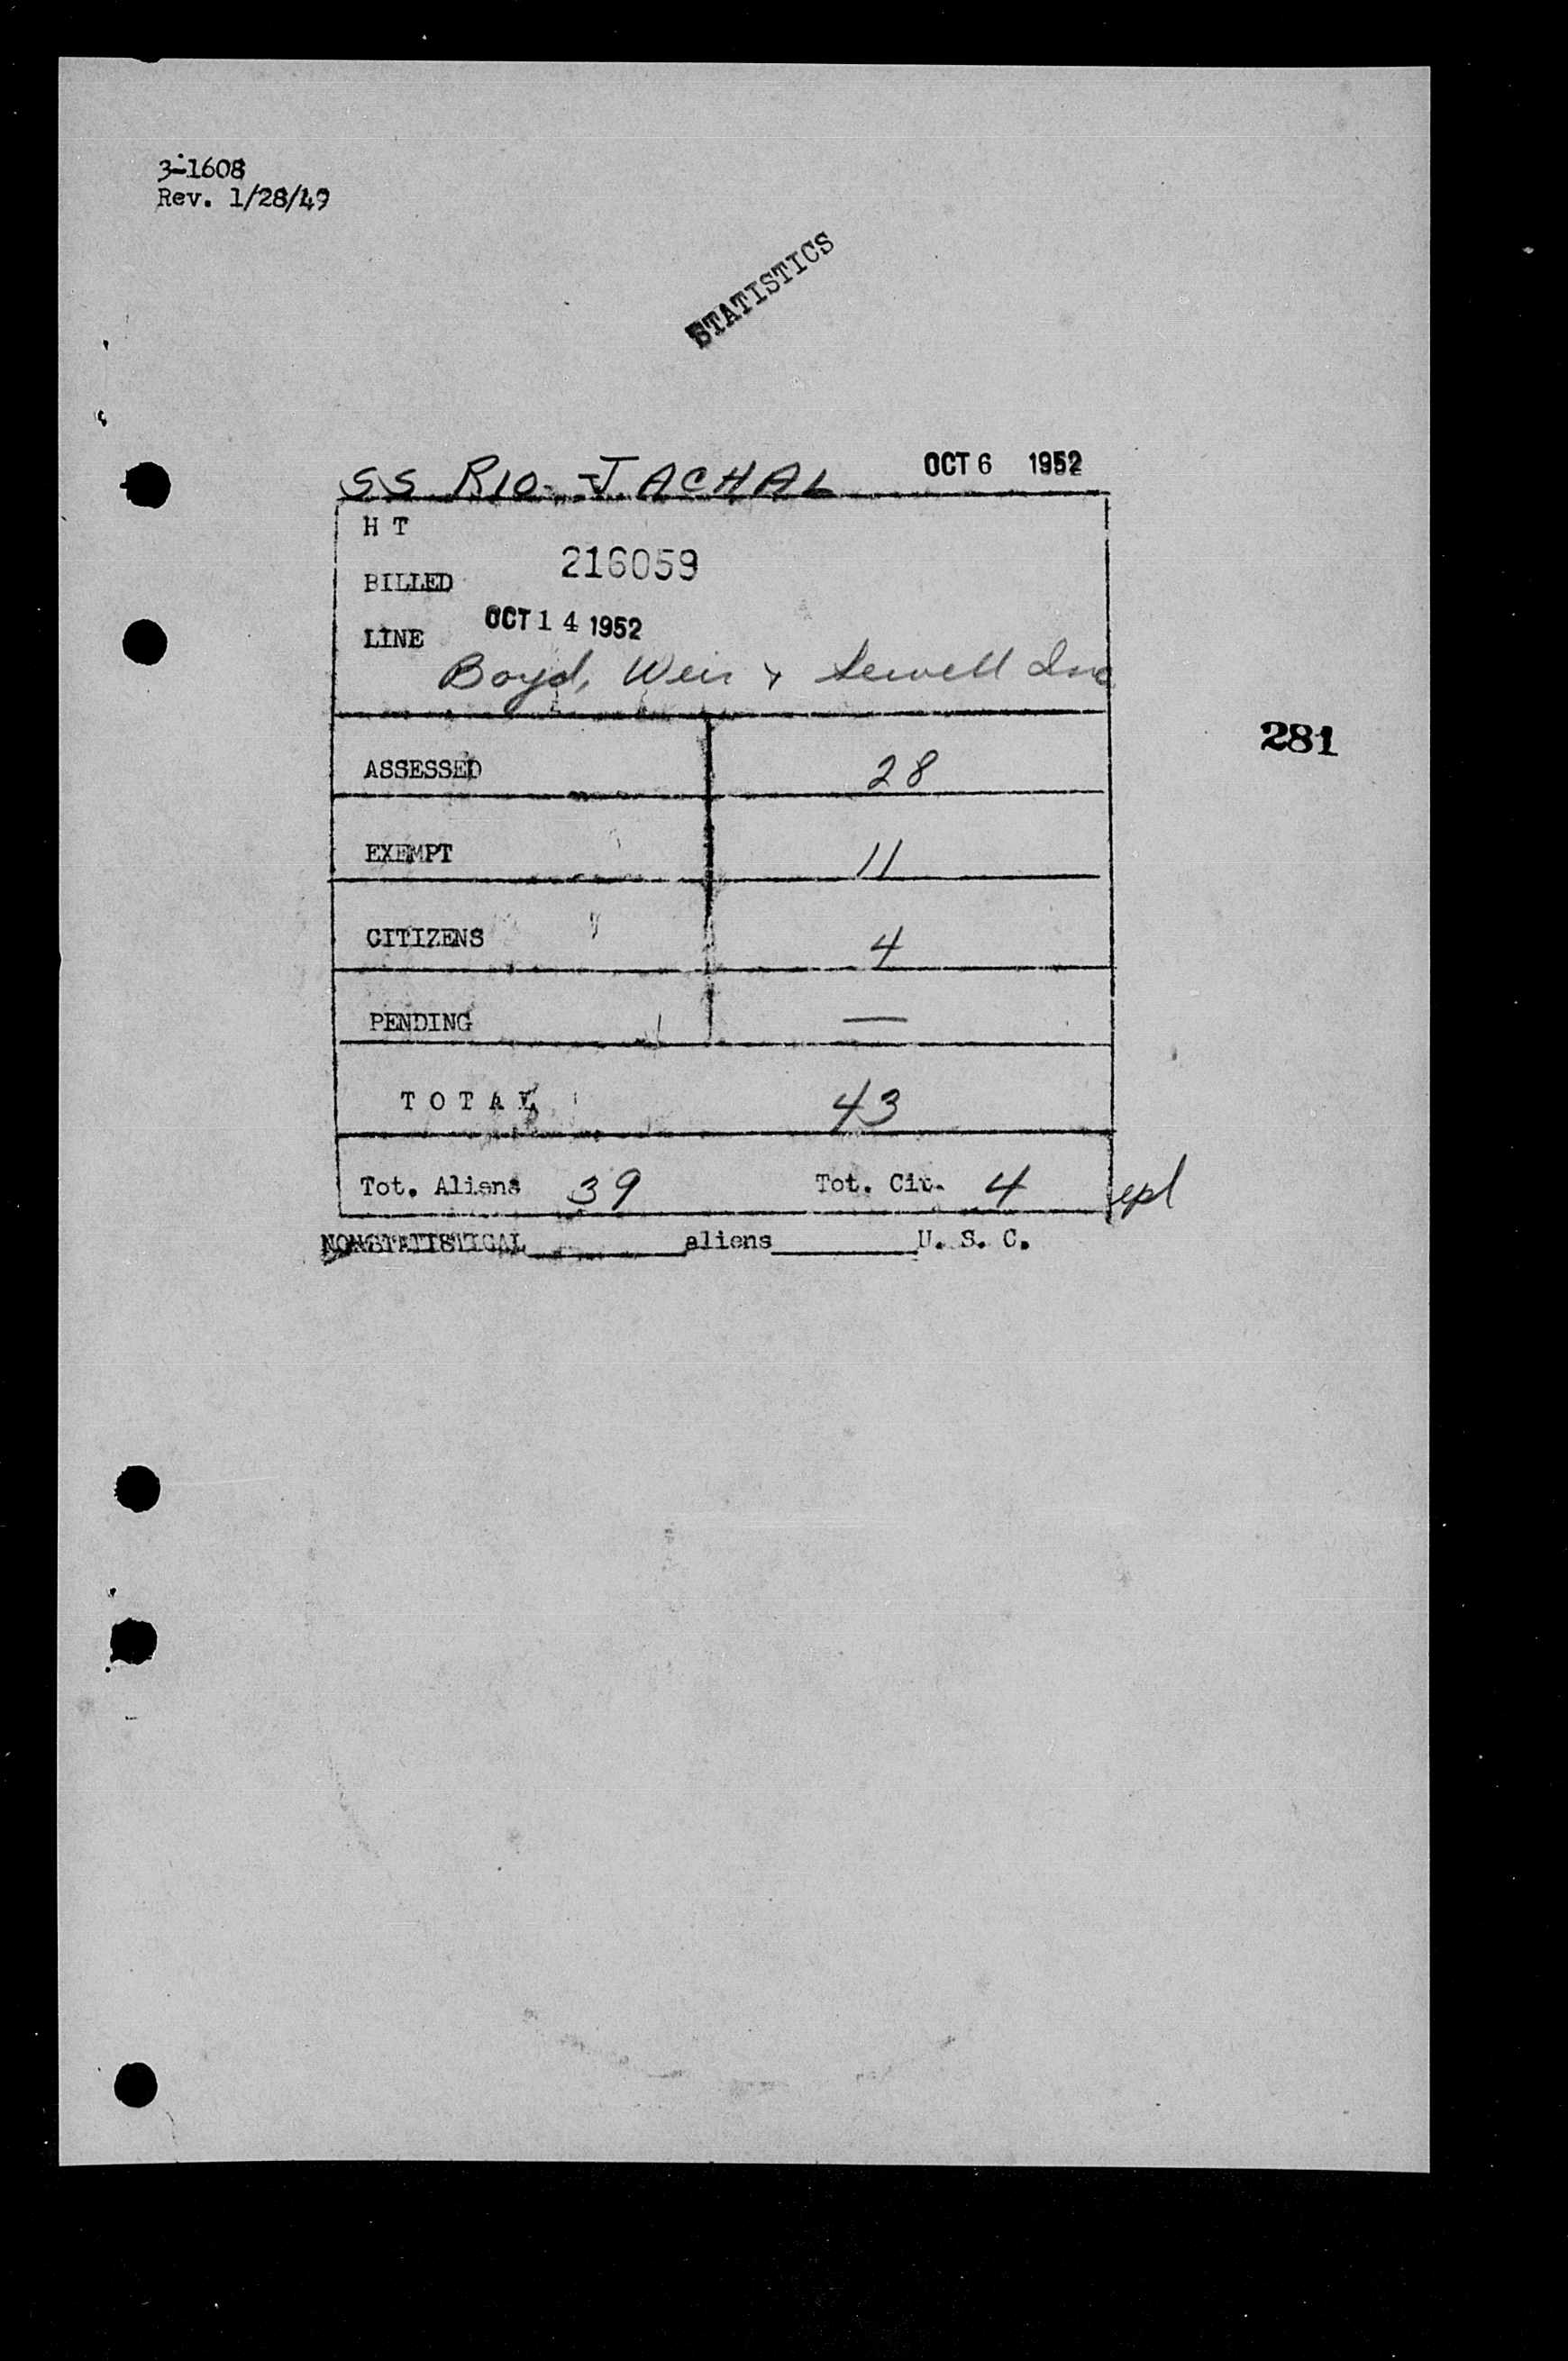 3-1608
Rev. 1/28/49
STATISTICS
SS RIO JACHAL OCT 6 1952
H T
216059
BILLED
OCT 14 1952
LINE
Boyd, Weir & Sewell Inc
281
ASSESSED 28
EXEMPT 11
CITIZENS 4
PENDING —
TOTAL 43
Tot. Aliens 39 Tot. Cit. 4 epl
NONSTATISTICAL________aliens________U. S. C.